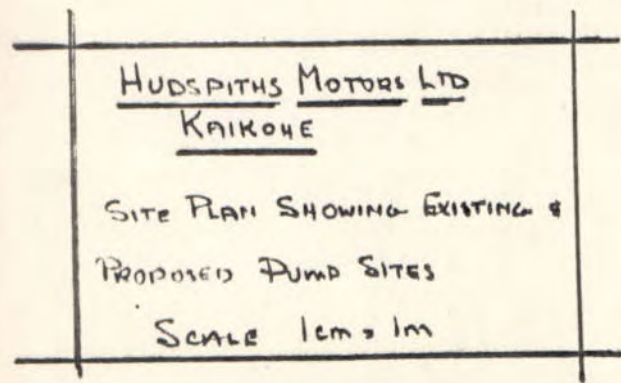 HUDSPITHS MOTORS LTD
KAIKOHE
SITE PLAN SHOWING EXISTING &
PROPOSED PUMP SITES
SCALE 1cm = 1m